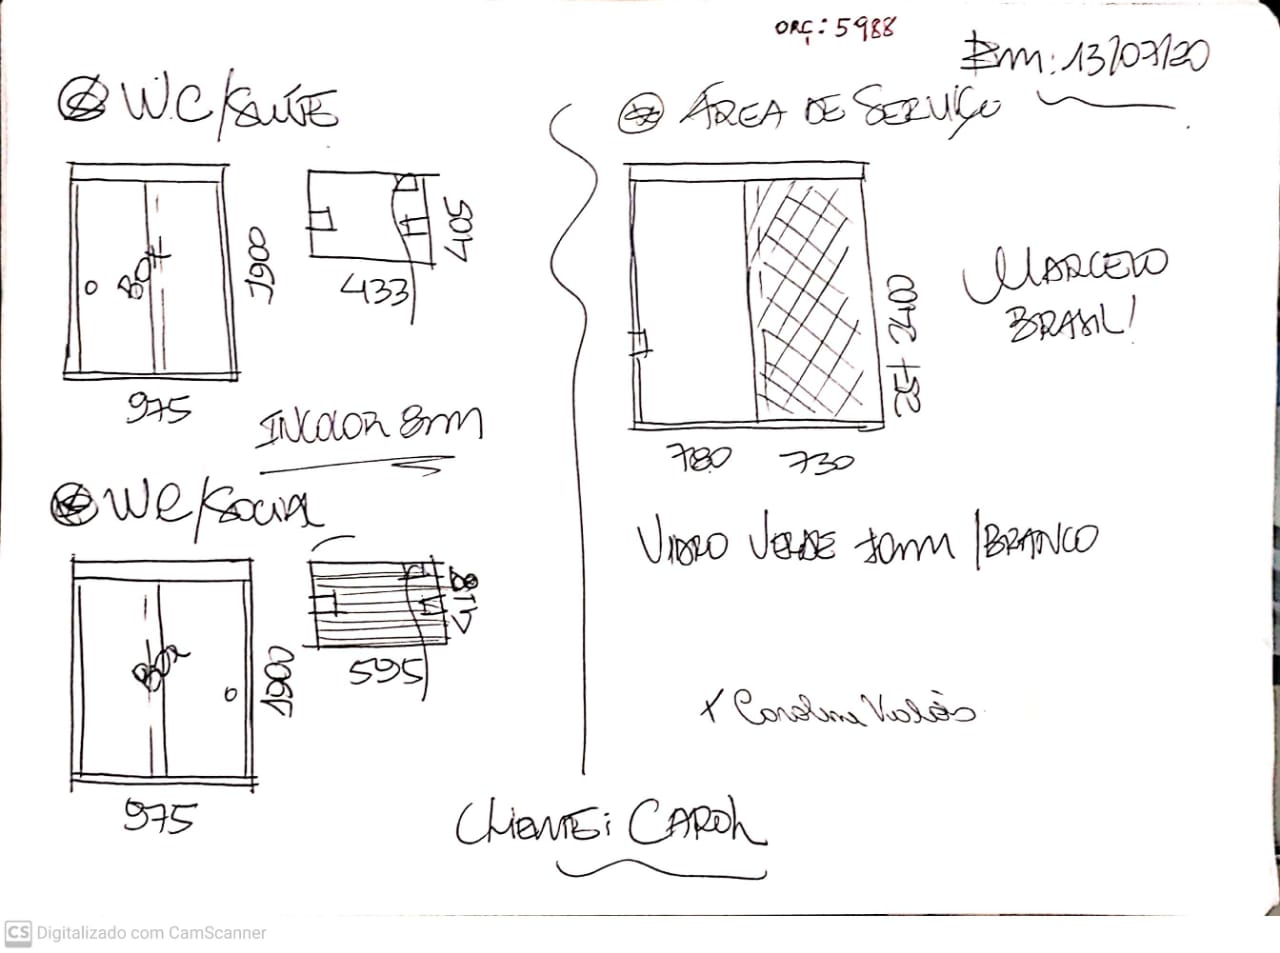 ORÇ: 5988
Em: 13/07/20
W.C/SUÍTE
BOX
1900
975
433
405
INCOLOR 8mm
WC/SOCIAL
BOX
1900
975
595
418
ÁREA DE SERVIÇO
2400 +52
780 730
MARCELO
BRASIL!
VIDRO VERDE 10mm/BRANCO
x Caroline
CLIENTE: CAROL
CS Digitalizado com CamScanner